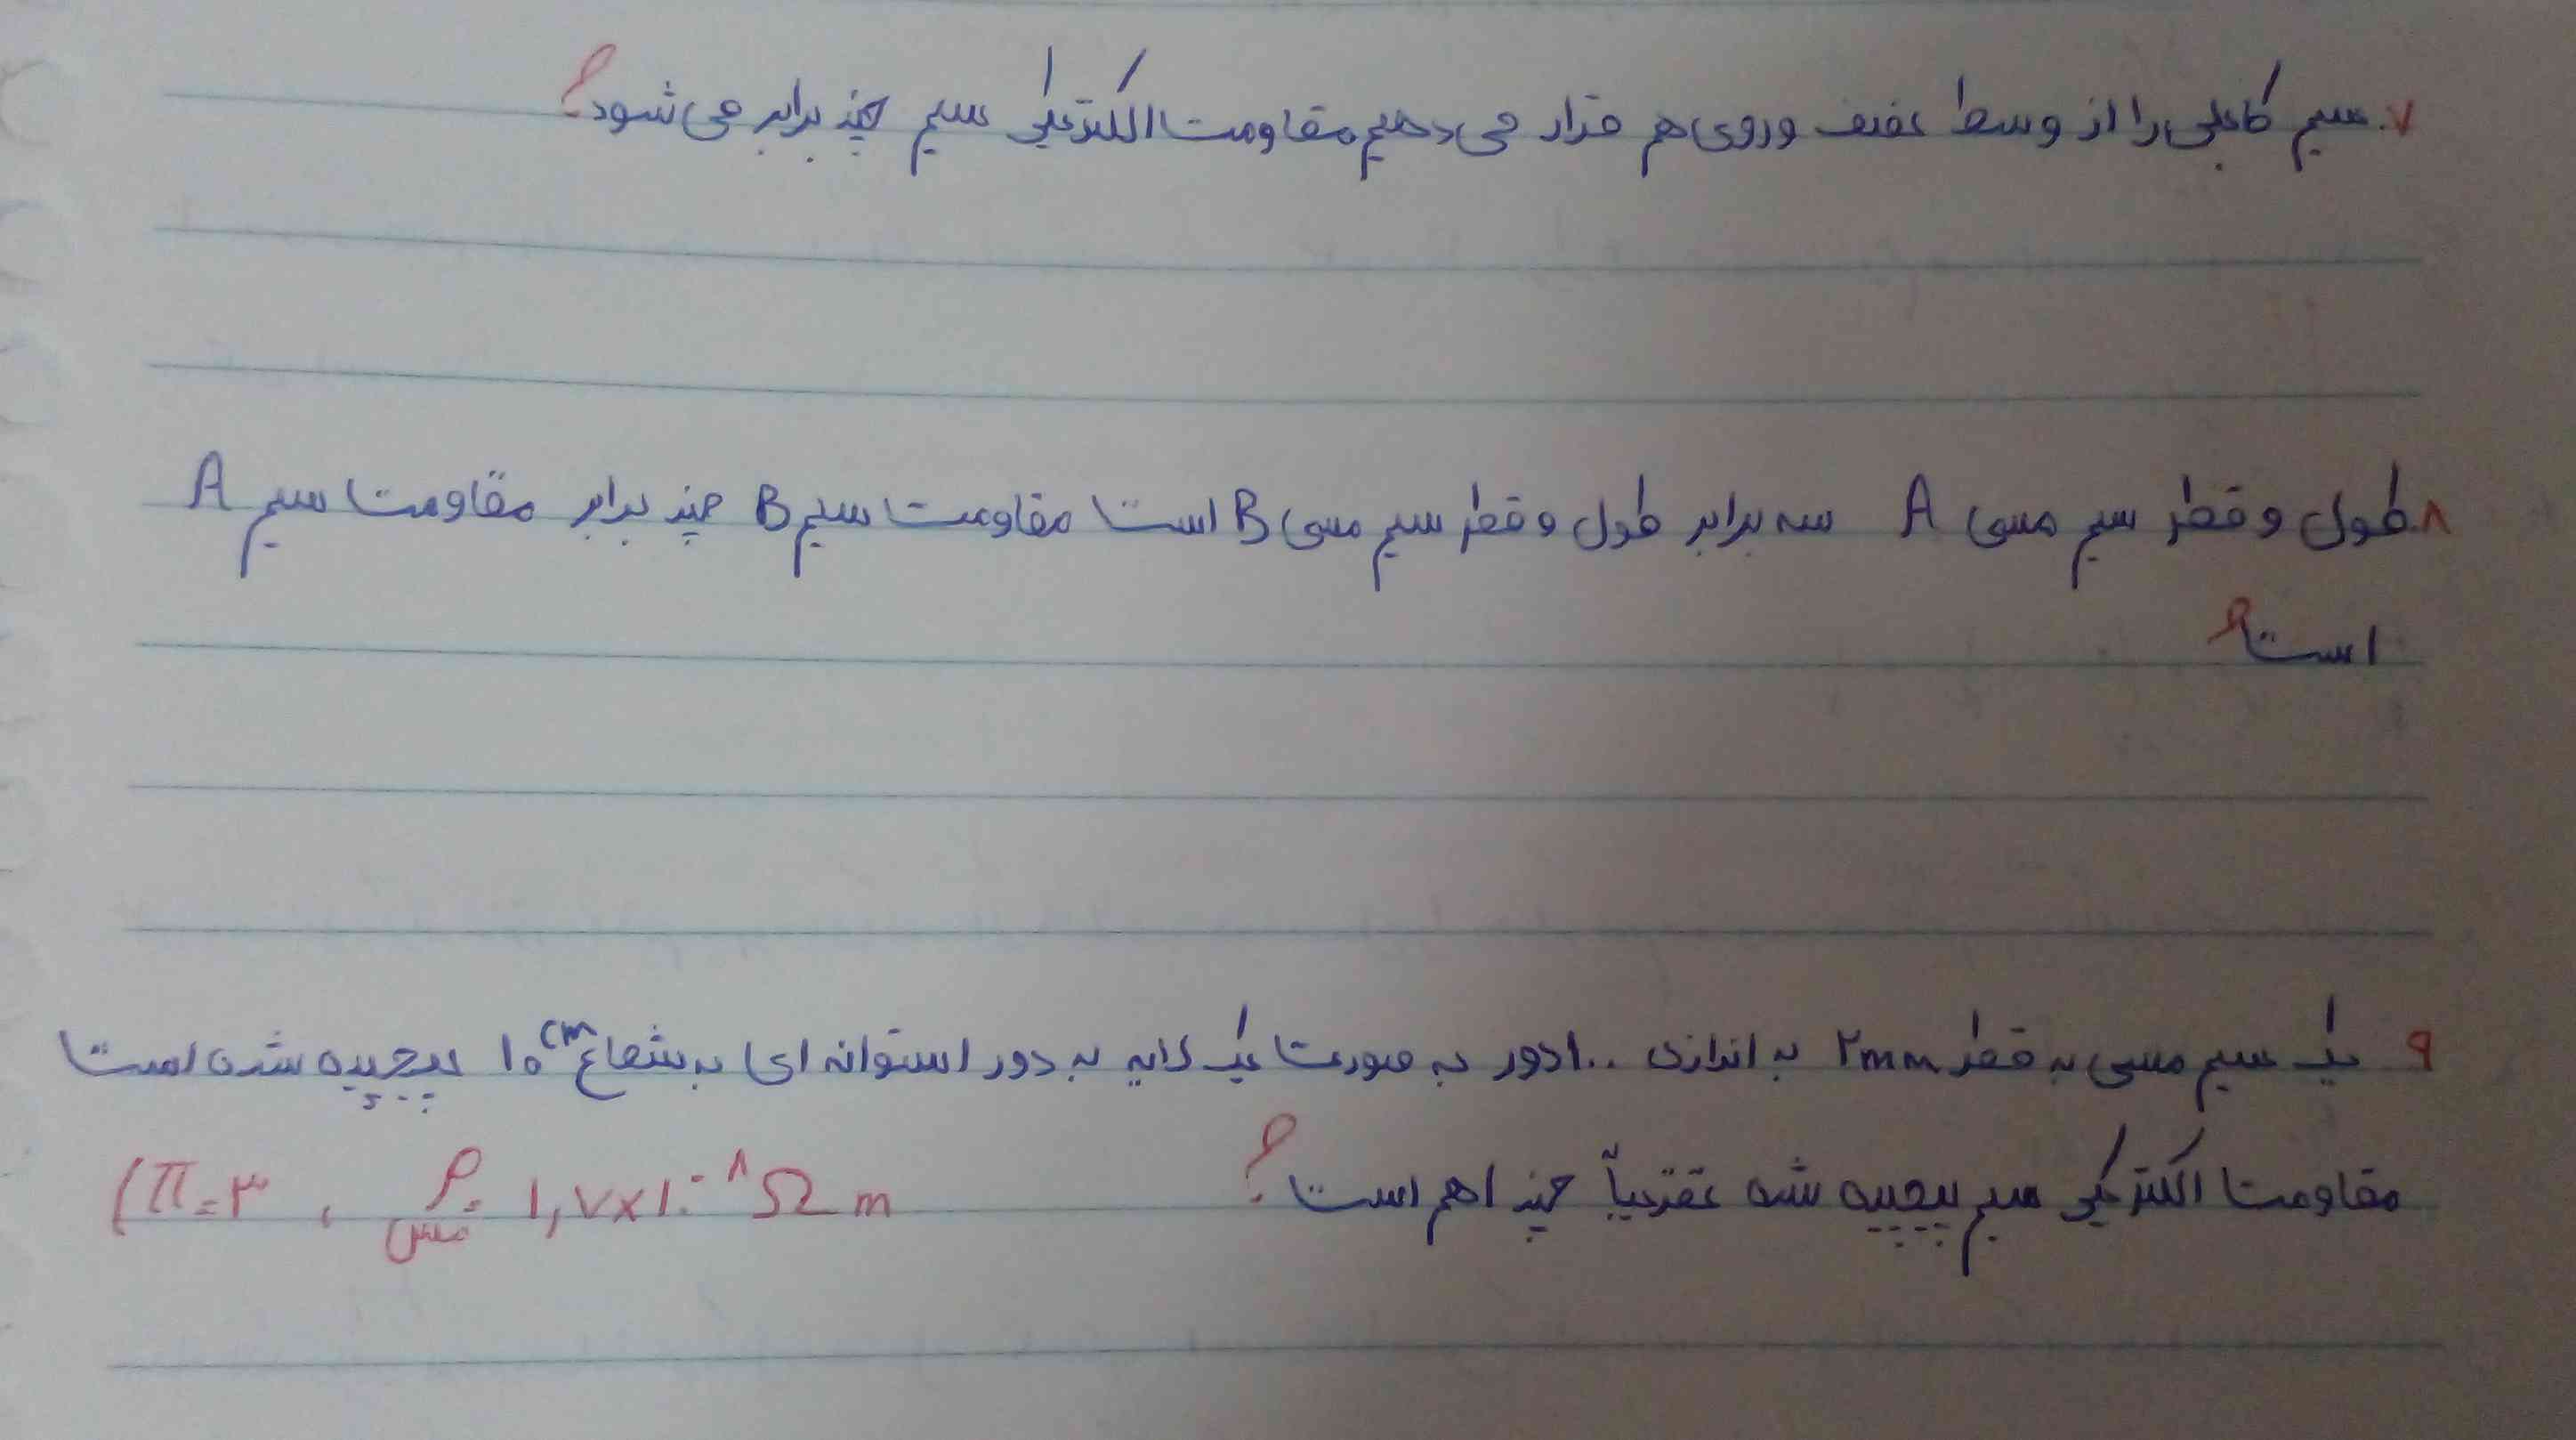 ۷. سیم کابلی را از وسط نصف و روی هم قرار می دهیم مقاومت الکتریکی سیم چند برابر می شود؟
۸ طول و قطر سیم مسی A سه برابر طول و قطر سیم مسی B است مقاومت سیم B چند برابر مقاومت سیم A
است؟
۹ یک سیم مسی به قطر ۲mm به اندازی ۱۰۰ دور به صورت یک لایه به دور استوانه ای به شعاع ۱۰cm پیچیده شده است
مقاومت الکتریکی سیم پیچیده شده تقریباً چند اهم است؟ (π=۳ , ρمس = ۱,۷×۱۰⁻⁸ Ωm